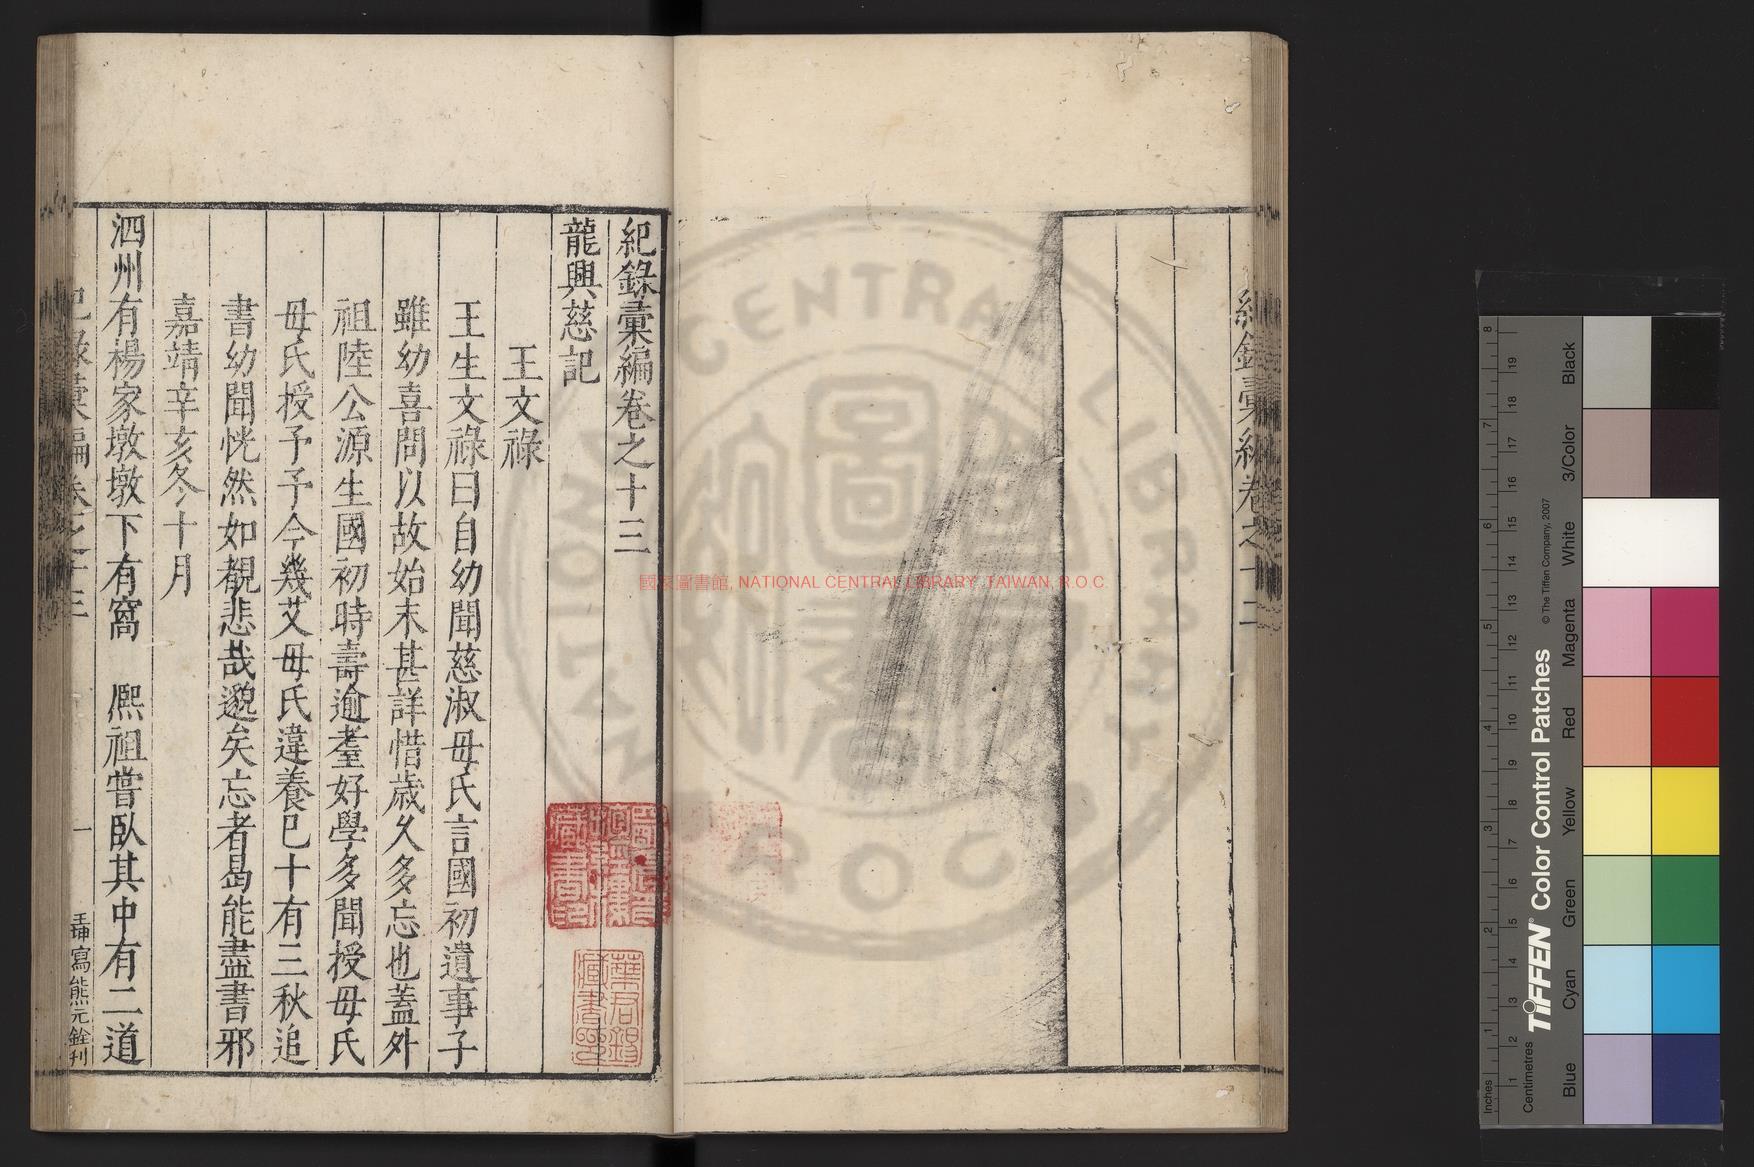 紀錄彙編卷之十三
龍興慈記
王文祿
王生文祿曰自幼聞慈淑母氏言國初遺事子
雖幼喜問以故始末甚詳惜歲久多忘也蓋外
祖陸公源生國初時壽逾耋好學多聞授母氏
母氏授予予今幾艾母氏違養已十有三秋追
書幼聞恍然如覩悲哉邈矣忘者曷能盡書邪
嘉靖辛亥冬十月
泗州有楊家墩墩下有窩 熈祖嘗臥其中有二道
紀錄彙編卷之十三
一
寫熊元銓刊
國家圖書館, NATIONAL CENTRAL LIBRARY ,TAIWAN, R.O.C
NATIONAL CENTRAL LIBRARY
R.O.C
藏書印
華
藏書
Inches
Centimetres
TIFFEN® Color Control Patches
© The Tiffen Company, 2007
Blue
Cyan
Green
Yellow
Red
Magenta
White
3/Color
Black